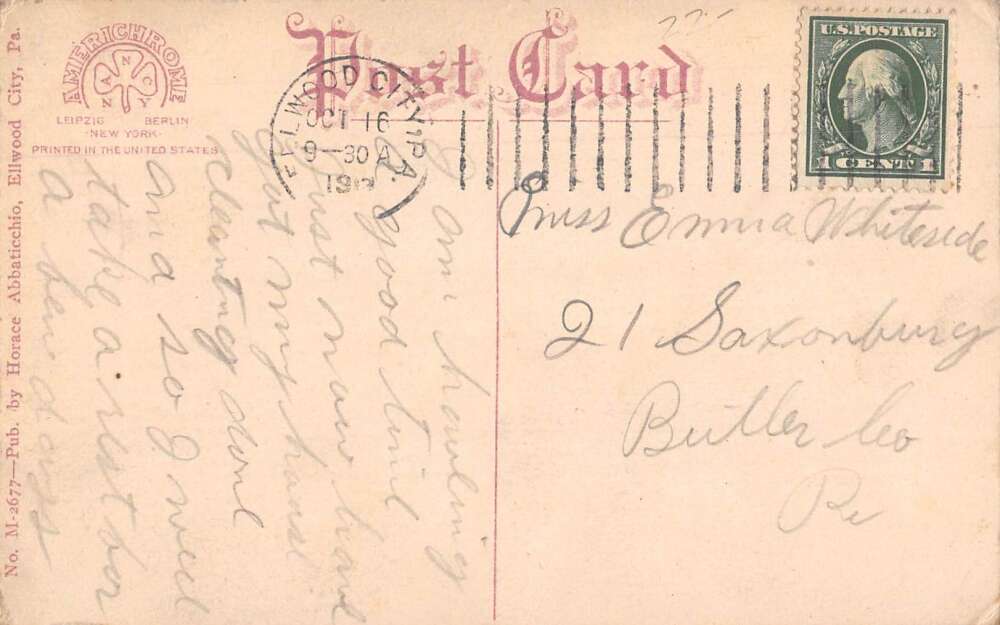 AMERICHROME
ANCNY
LEIPZIG BERLIN
·NEW YORK·
PRINTED IN THE UNITED STATES
No. M-2677—Pub. by Horace Abbaticchio, Ellwood City, Pa.
Post Card
ELLWOOD CITY, PA.
OCT 16
9-30 A
U.S. POSTAGE
1 CENT 1
I am haveing
good time
just now have
got my house
cleaning done
and so I will
take a rest for
a few days
Miss Emma Whiteside
21 Saxonburg
Butler Co
Pa